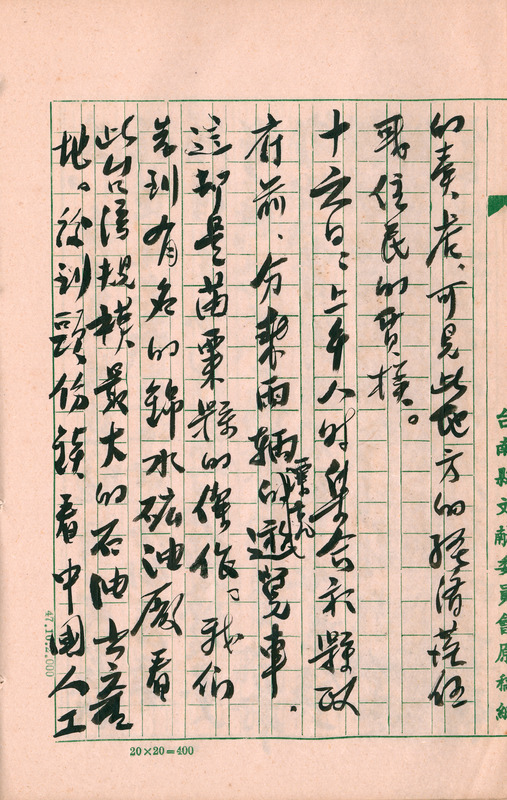 台南縣文獻委員會原稿紙
的賣店、可見此地方的經濟落伍
與住民的質樸。
十六日、上午八時集合於縣政
府前、分乘兩輛的遊覽車.
這却是苗栗縣的傑作。我們
先到有名的錦水礦油廠看
此台灣規模最大的石油出產
地。後到頭份鎮看中國人工
20×20=400